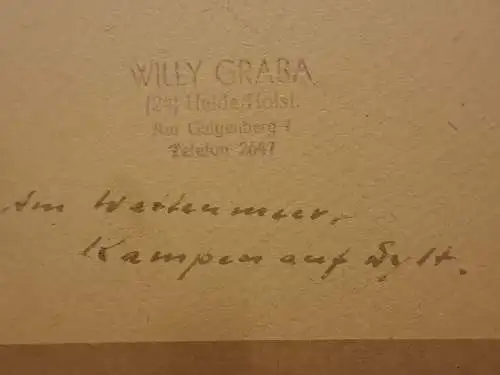 WILLY GRABA
(24) Heide/Holst.
Am Galgenberg 7
Telefon 2647
Am Wattenmeer,
Kampen auf Sylt.